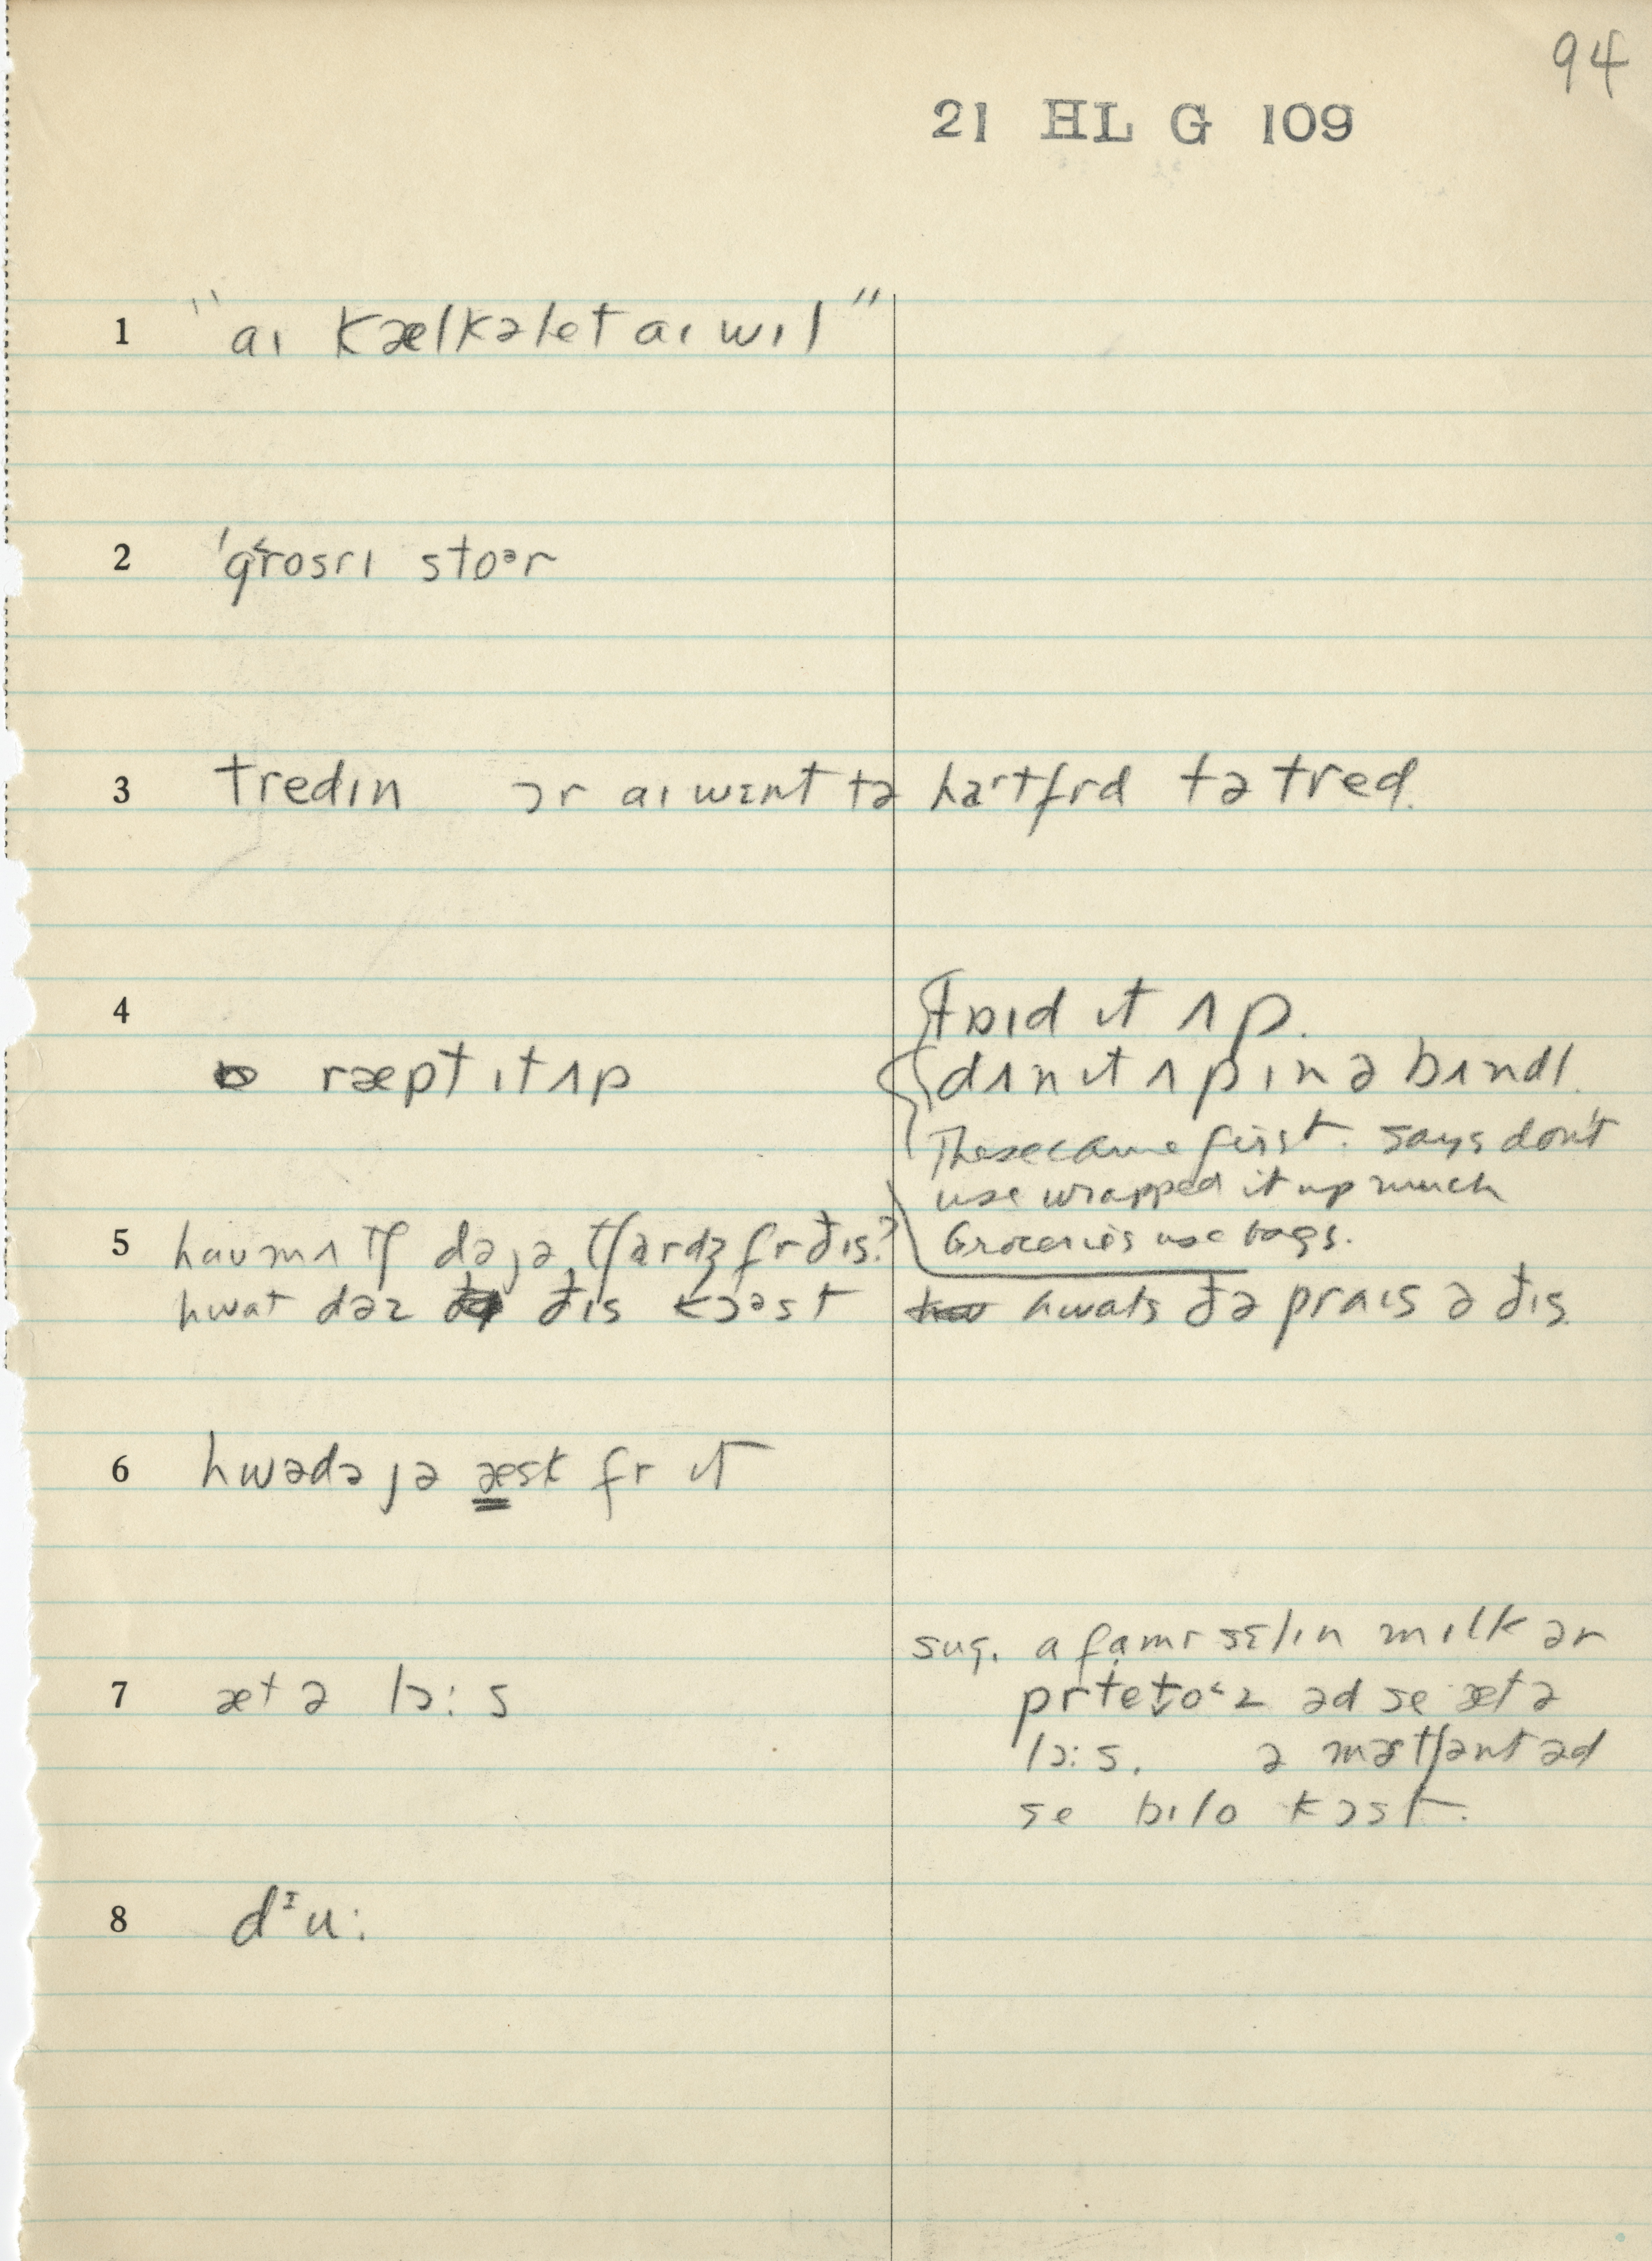 94
21 HL G 109
1 "aɪ kælkəlet aɪ wɪl"
2 'gr˂osrɪ stoᵊr
3 tredɪn ɔr aɪ wɛnt tə hɑrtfrd tə tred.
4 tɒɪd ɪt ʌp.
ræpt ɪt ʌp dʌn ɪt ʌp ɪn ə bʌndl.
These came first. Says don't
use wrapped it up much
Groceries use bags.
5 haʊ mʌtʃ də jə tʃardʒ fr ðɪs?
hwat dəz ðɪs kɔᵊst hwats ðə praɪs ə ðɪs.
6 hwədə jə æsk fr ɪt
sug. a famr sɛlɪn mɪlk ər
7 æt ə lɔ:s prtetoᶜz əd se æt ə
lɔ:s. ə mərtʃənt əd
se bɪlo kɔst.
8 dᶦu: